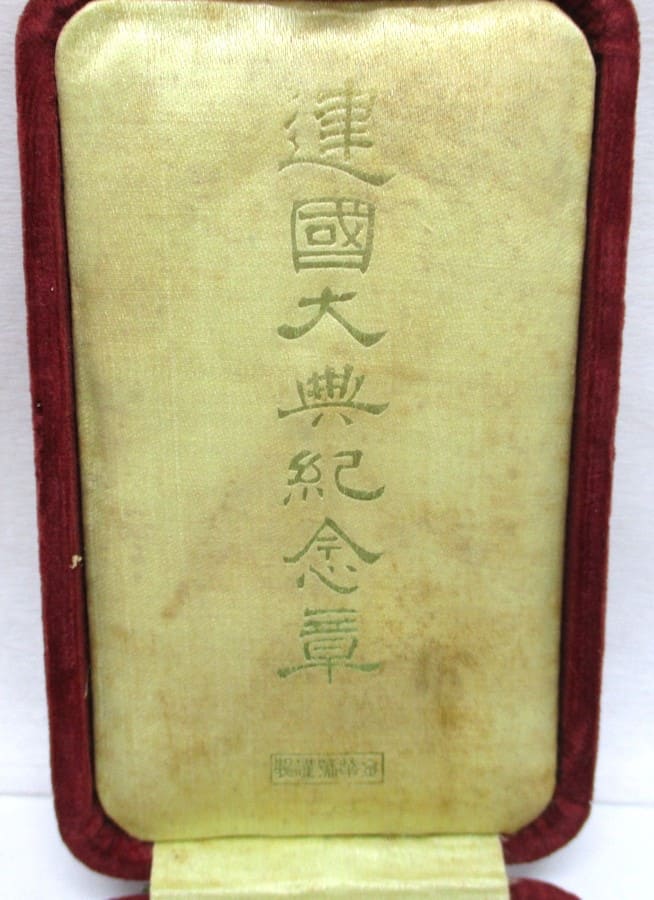 建國大典紀念章